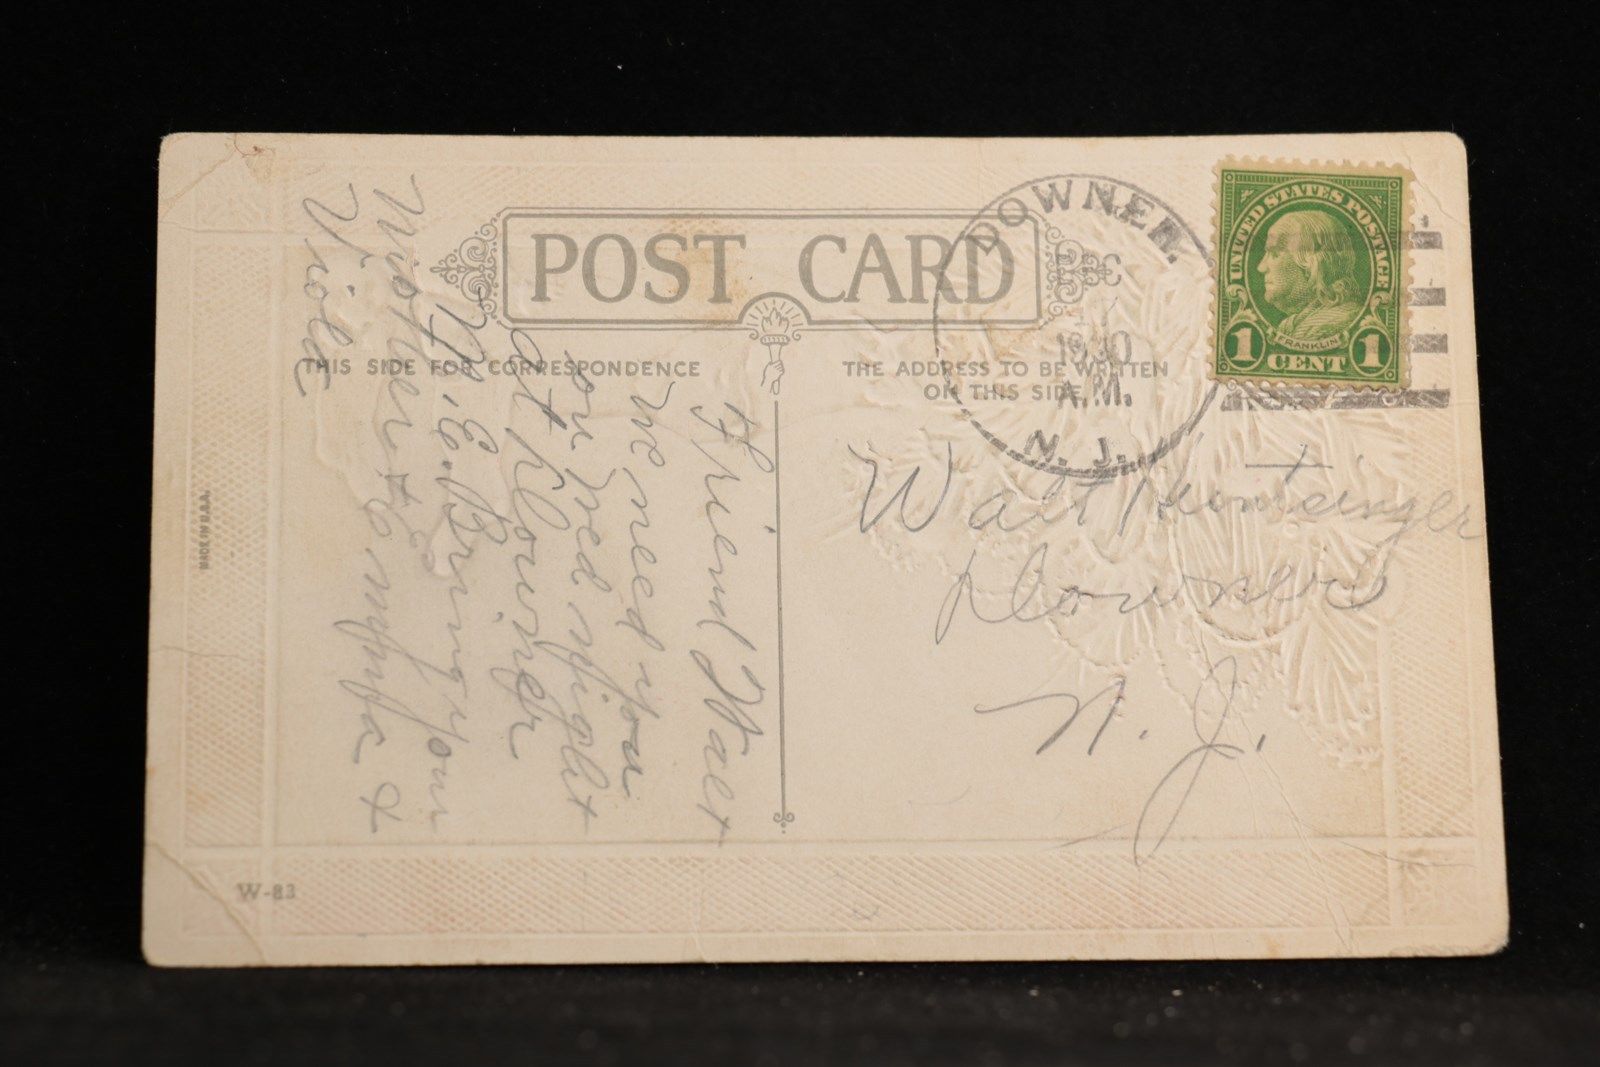 POST CARD
THIS SIDE FOR CORRESPONDENCE
THE ADDRESS TO BE WRITTEN
ON THIS SIDE
DOWNER.
DEC
1930
A.M.
N. J.
UNITED STATES POSTAGE
FRANKLIN
1 CENT 1
Friend Walt
We need you
on Wed night
at Downer
M. E. Bring your
Mother &
Viola
Walt
Downer
N. J.
MADE IN U.S.A.
W-83